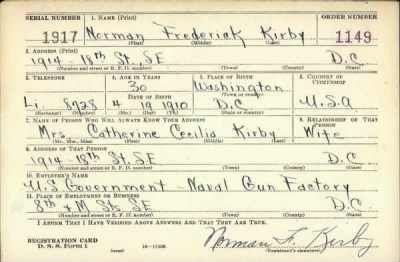 SERIAL NUMBER 1. NAME (Print) ORDER NUMBER
1917 Norman Frederick Kirby 1149
(First) (Middle) (Last)
2. ADDRESS (Print)
1914 - 18th St. SE D.C.
(Number and street or R. F. D. number) (Town) (County) (State)
3. TELEPHONE 4. AGE IN YEARS 5. PLACE OF BIRTH 6. COUNTRY OF CITIZENSHIP
30 Washington
DATE OF BIRTH (Town or county)
Li. 8928 4 19 1910 D.C. U.S.A
(Exchange) (Number) (Mo.) (Day) (Yr.) (State or country)
7. NAME OF PERSON WHO WILL ALWAYS KNOW YOUR ADDRESS 8. RELATIONSHIP OF THAT PERSON
Mrs. Catherine Cecilia Kirby Wife
(Mr., Mrs., Miss) (First) (Middle) (Last)
9. ADDRESS OF THAT PERSON
1914 - 18th St. SE D.C.
(Number and street or R. F. D. number) (Town) (County) (State)
10. EMPLOYER'S NAME
U.S. Government - Naval Gun Factory
11. PLACE OF EMPLOYMENT OR BUSINESS
8th & M Sts. SE D.C.
(Number and street or R. F. D. number) (Town) (County) (State)
I AFFIRM THAT I HAVE VERIFIED ABOVE ANSWERS AND THAT THEY ARE TRUE.
REGISTRATION CARD
D. S. S. Form 1 (over) Norman F. Kirby
(Registrant's signature)